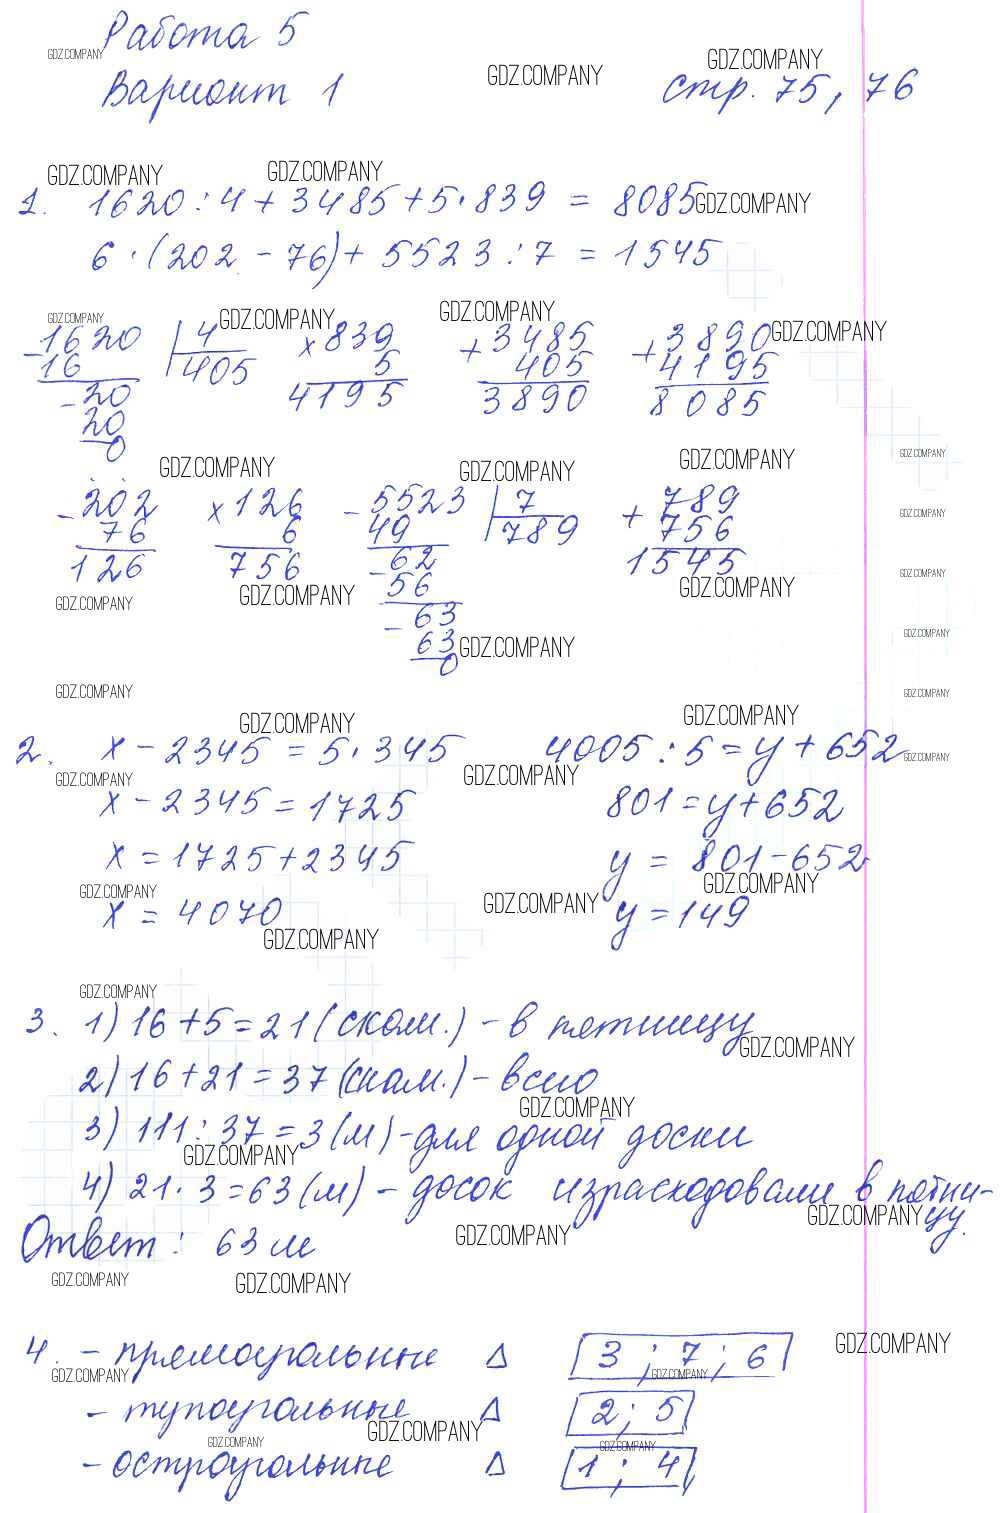 Работа 5
GDZ.COMPANY
GDZ.COMPANY GDZ.COMPANY
Вариант 1 стр. 75, 76
GDZ.COMPANY GDZ.COMPANY
1. 1620 : 4 + 3485 + 5 · 839 = 8085 GDZ.COMPANY
6 · (202 - 76) + 5523 : 7 = 1545
GDZ.COMPANY GDZ.COMPANY GDZ.COMPANY
-1620 | 4 × 839 + 3485 + 3890 GDZ.COMPANY
16 405 5 405 4195
-20 4195 3890 8085
20
0
GDZ.COMPANY GDZ.COMPANY GDZ.COMPANY GDZ.COMPANY
-202 ×126 -5523 | 7 + 789
76 6 49 789 756 GDZ.COMPANY
126 756 -62 1545
56 GDZ.COMPANY
GDZ.COMPANY GDZ.COMPANY GDZ.COMPANY
-63
63 GDZ.COMPANY GDZ.COMPANY
0
GDZ.COMPANY GDZ.COMPANY
GDZ.COMPANY GDZ.COMPANY
2. x - 2345 = 5 · 345 4005 : 5 = y + 652 GDZ.COMPANY
GDZ.COMPANY GDZ.COMPANY
x - 2345 = 1725 801 = y + 652
x = 1725 + 2345 y = 801 - 652
GDZ.COMPANY GDZ.COMPANY GDZ.COMPANY
x = 4070 y = 149
GDZ.COMPANY
GDZ.COMPANY
3. 1) 16 + 5 = 21 (скам.) - в пятницу
GDZ.COMPANY
2) 16 + 21 = 37 (скам.) - всего
GDZ.COMPANY
3) 111 : 37 = 3 (м) - для одной доски
GDZ.COMPANY
4) 21 · 3 = 63 (м) - досок израсходовали в пятни-
GDZ.COMPANY цу.
Ответ : 63 м GDZ.COMPANY
GDZ.COMPANY GDZ.COMPANY
4. - прямоугольные Δ 3 ; 7 ; 6 GDZ.COMPANY
GDZ.COMPANY GDZ.COMPANY
- тупоугольные Δ 2 ; 5
GDZ.COMPANY GDZ.COMPANY GDZ.COMPANY
- остроугольные Δ 1 ; 4